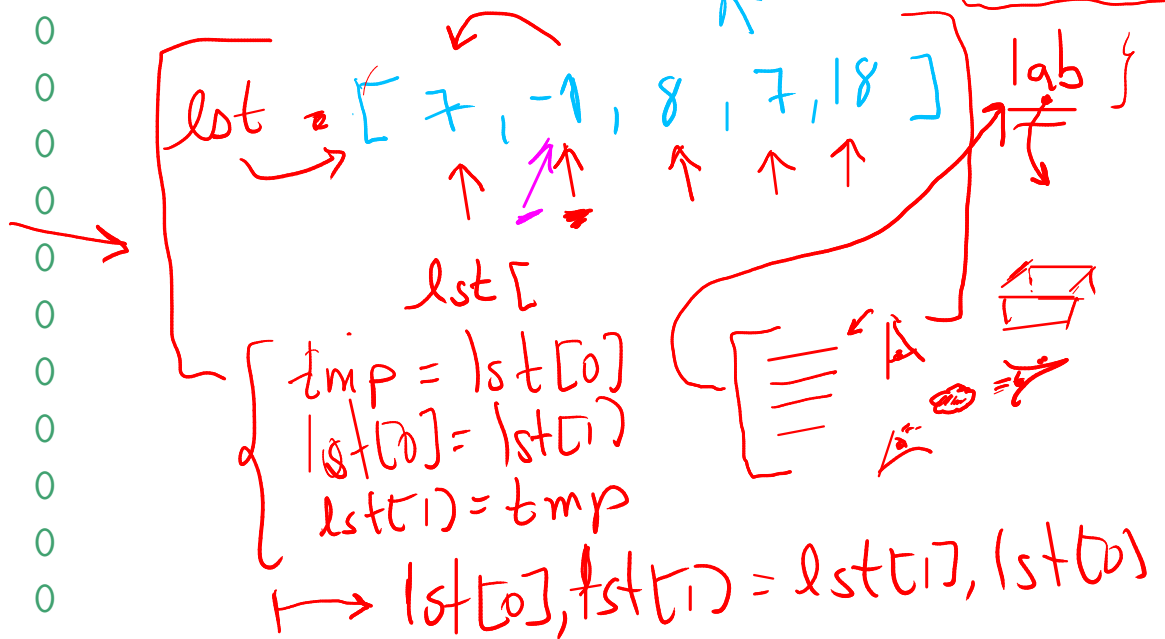 lst = [ 7 , -1 , 8 , 7 , 18 ]
lab
lst [
tmp = lst[0]
lst[0] = lst[1]
lst[1] = tmp
lst[0], lst[1] = lst[1], lst[0]